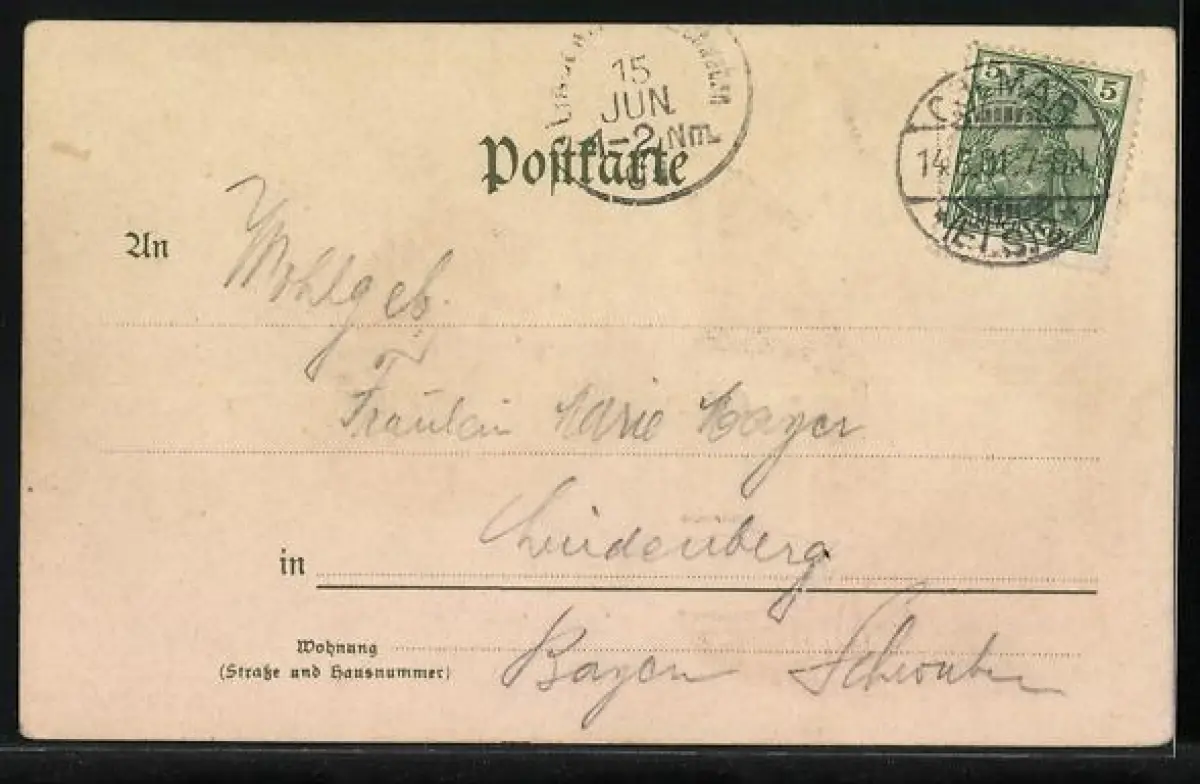 15
JUN.
1-2 Nm.
Postkarte
5 5
COLMAR
14.6.01. 7-8N.
* (ELS.) *
An
Wohlgeb.
Fräulein Marie Mayer
in Lindenberg
Wohnung
(Straße und Hausnummer)
Bayer Schwaben